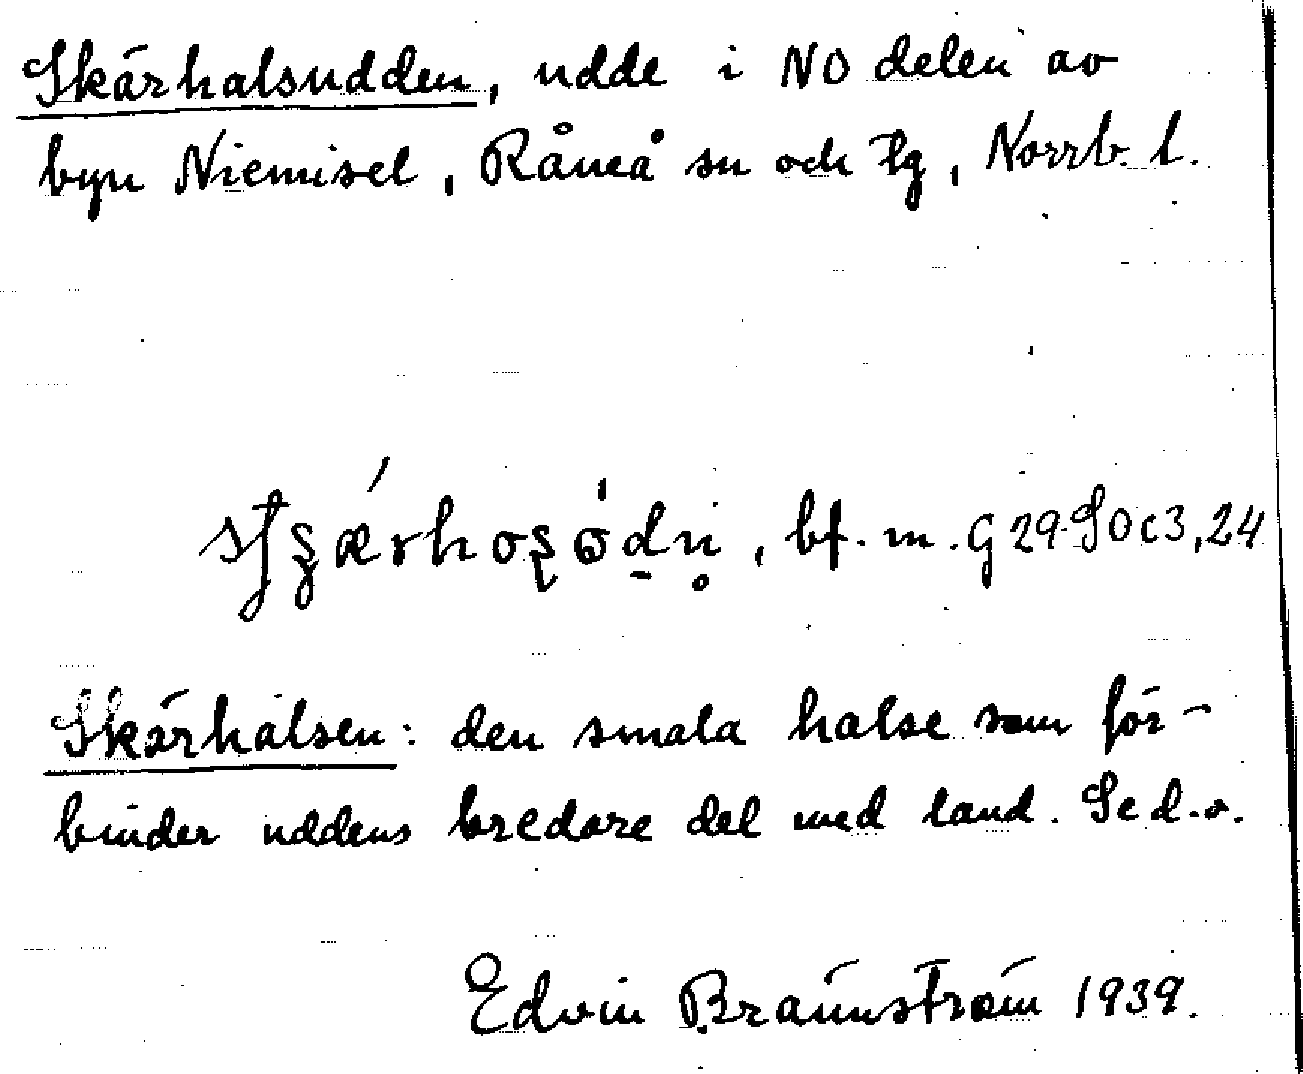 Skärhalsudden, udde i NO delen av
byn Niemisel, Råneå sn och tg, Norrb. l.
bf. m. G 29 SO c 3, 24
Skärhalsen: den smala halse som för-
binder uddens bredare del med land. Se d.o.
Edvin Brännström 1939.